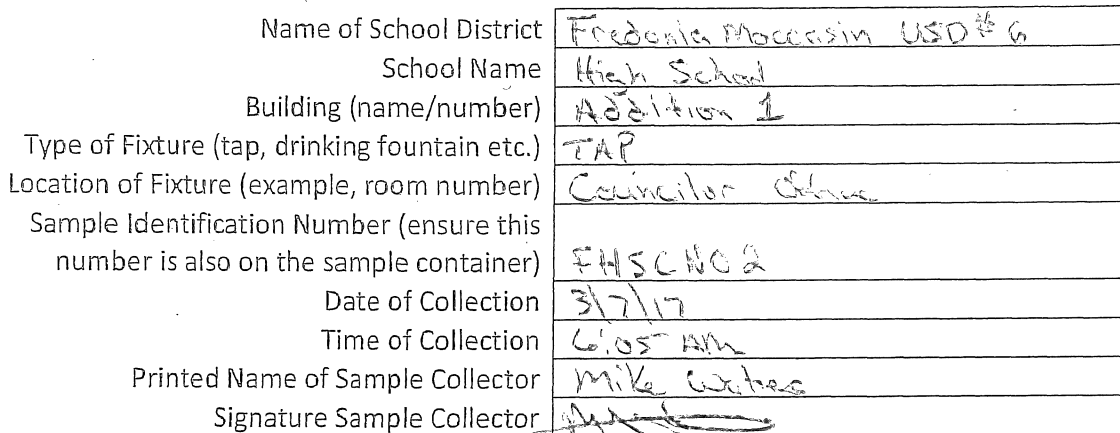 Name of School District Fredonia Moccasin USD # 6
School Name High School
Building (name/number) Addition 1
Type of Fixture (tap, drinking fountain etc.) TAP
Location of Fixture (example, room number) Councilor Office
Sample Identification Number (ensure this
number is also on the sample container) FHSCNO2
Date of Collection 3/7/17
Time of Collection 6:05 AM
Printed Name of Sample Collector Mike
Signature Sample Collector